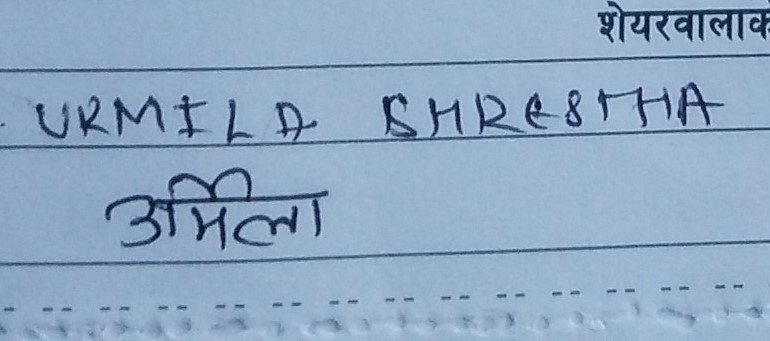 शेयरवालाक
URMILA SHRESTHA
उर्मिला